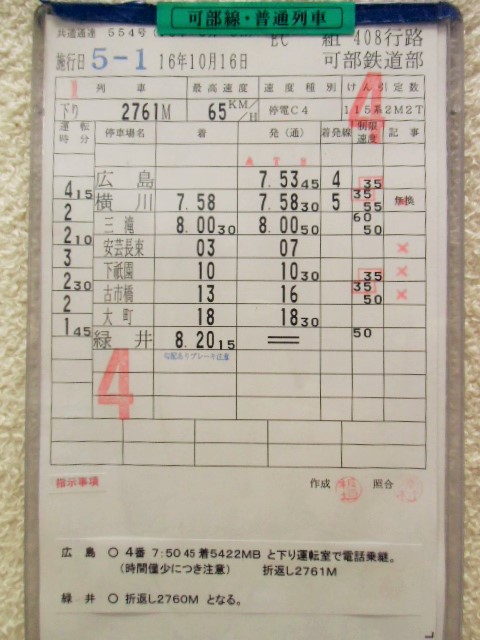 可部線・普通列車
共通通達 554号
EC 組1 408行路
施行日 5-1 16年10月16日 可部鉄道部
列車 最高速度 速度種別 けん引定数
下り 2761M 65KM/H 停電C4 115系2M2T
4
運転時分 停車場名 着 発(通) 着発線 制限速度 記事
広島 7.5345 4 35
415 35
横川 7.58 7.5830 5 55 無換
2 60
三滝 8.0030 8.0050 50
210
安芸長束 03 07 ×
3
下祇園 10 1030 35 ×
230 35
古市橋 13 16 50 ×
2
大町 18 1830
145
緑井 8.2015 = 50
勾配ありブレーキ注意
4
指示事項 作成 照合
広島 ○ 4番 7:50 45 着5422MB と下り運転室で電話乗継。
(時間僅少につき注意) 折返し2761M
緑井 ○ 折返し2760M となる。